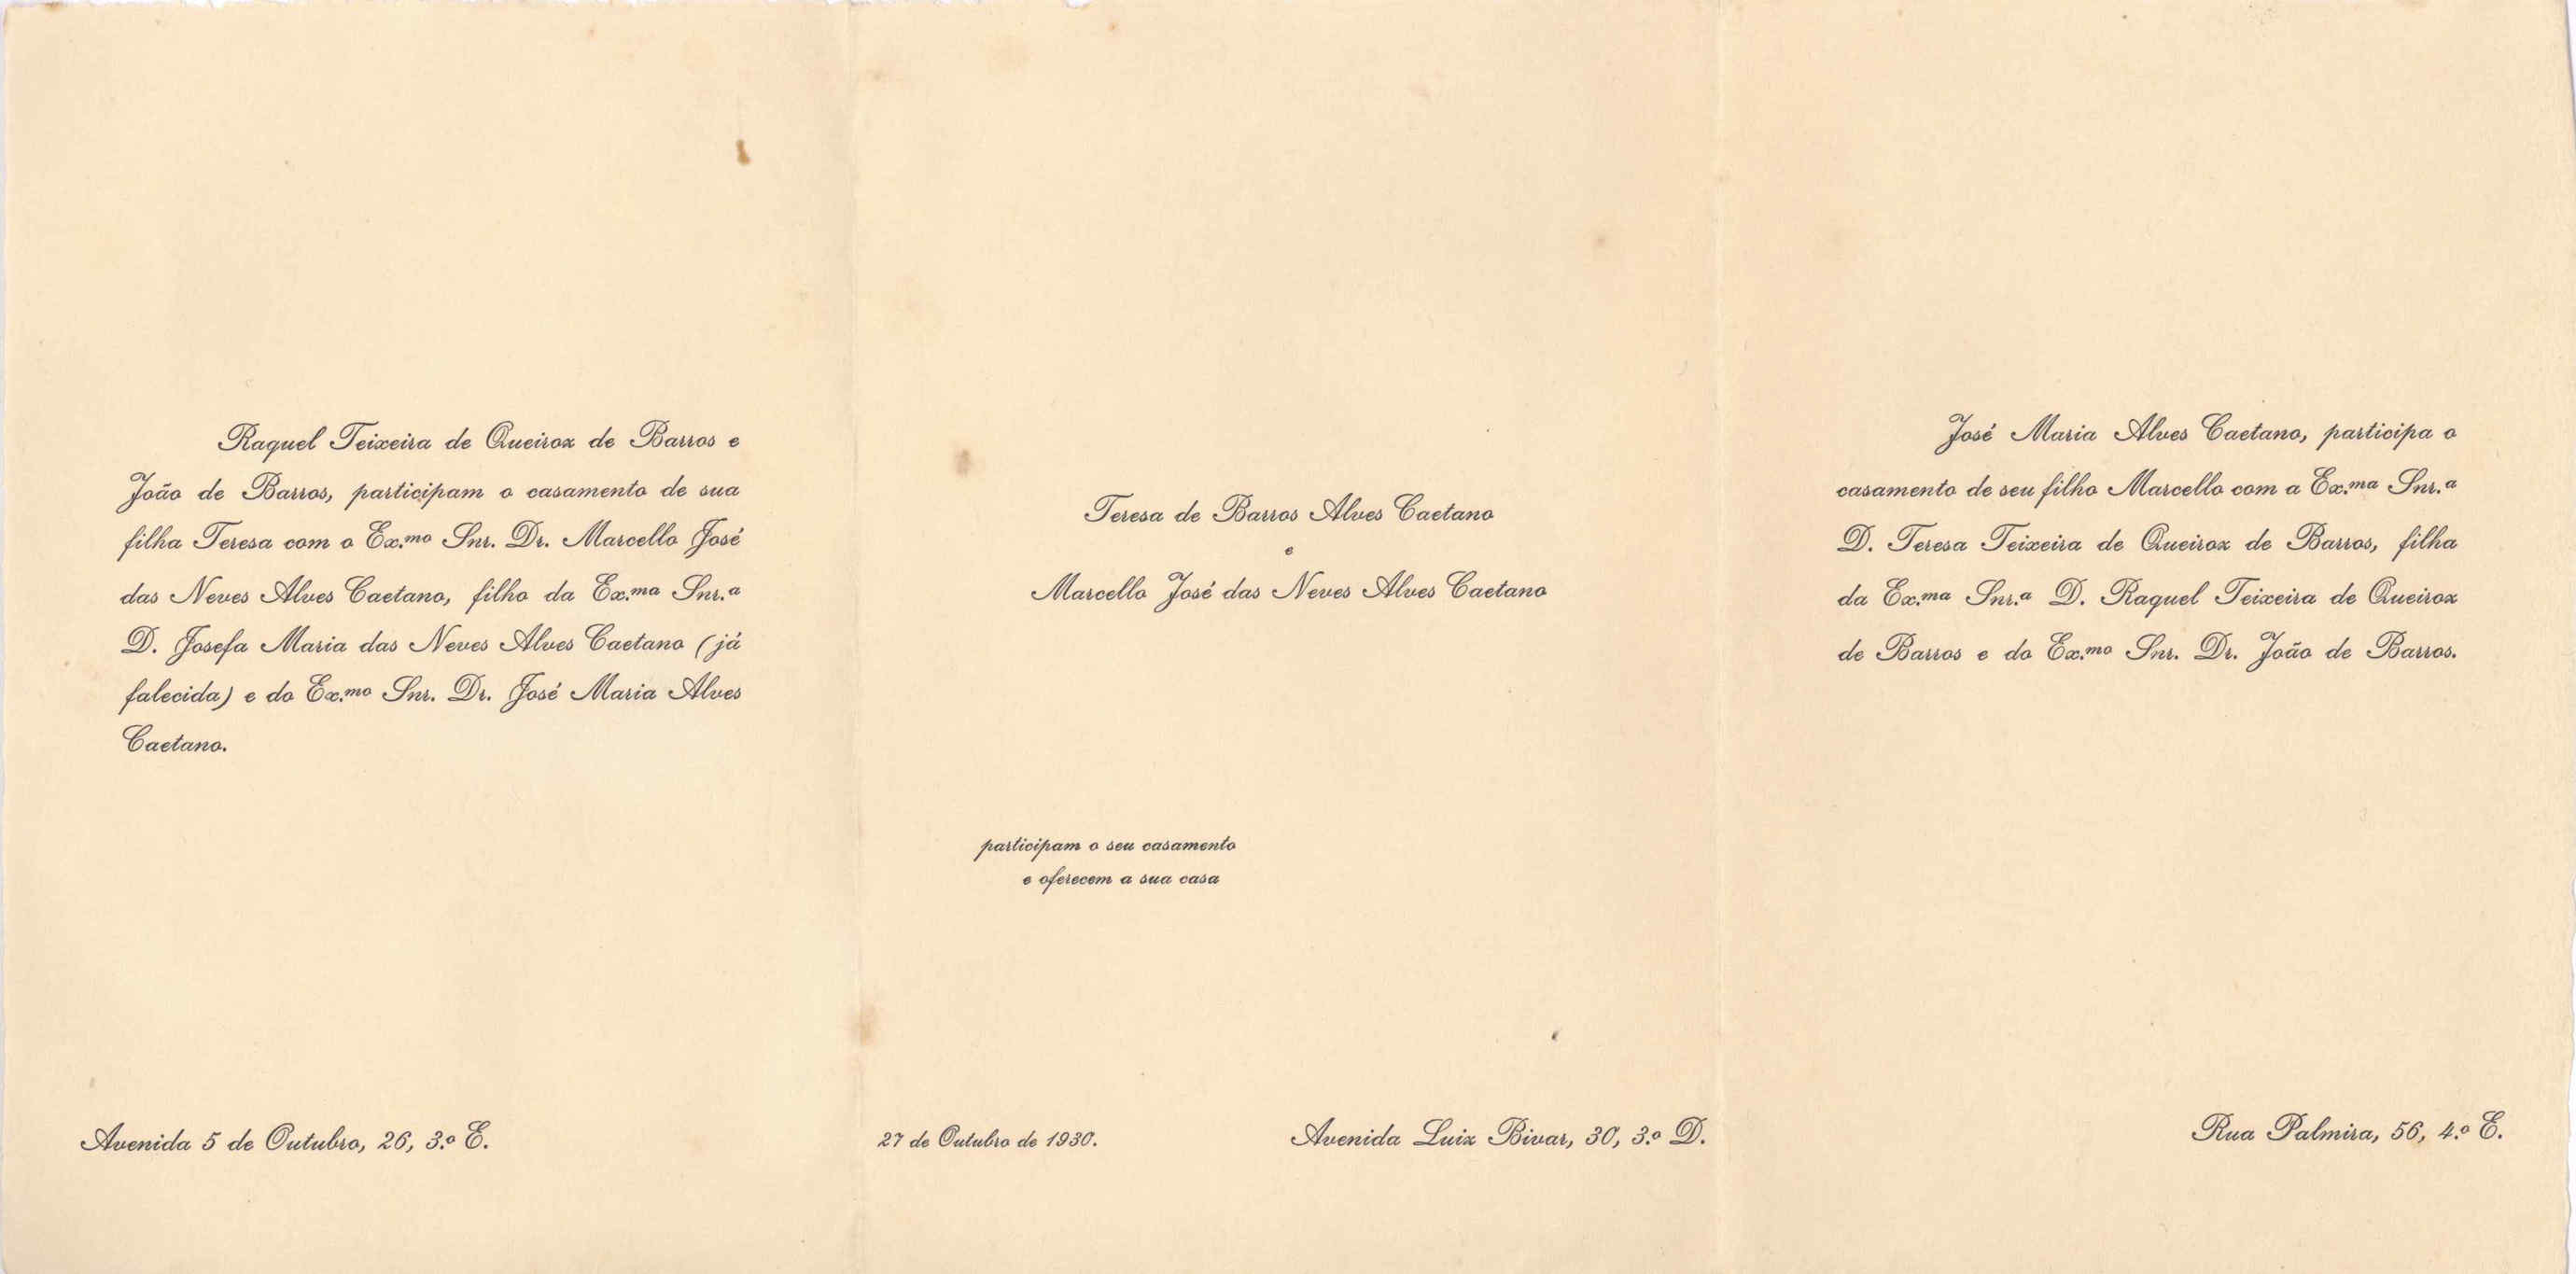 Raquel Teixeira de Queiroz de Barros e
João de Barros, participam o casamento de sua
filha Teresa com o Ex.mo Snr. Dr. Marcello José
das Neves Alves Caetano, filho da Ex.ma Snr.a
D. Josefa Maria das Neves Alves Caetano (já
falecida) e do Ex.mo Snr. Dr. José Maria Alves
Caetano.
Avenida 5 de Outubro, 26, 3.o E.
Teresa de Barros Alves Caetano
e
Marcello José das Neves Alves Caetano
participam o seu casamento
e oferecem a sua casa
27 de Outubro de 1930.
Avenida Luiz Bivar, 30, 3.o D.
José Maria Alves Caetano, participa o
casamento de seu filho Marcello com a Ex.ma Snr.a
D. Teresa Teixeira de Queiroz de Barros, filha
da Ex.ma Snr.a D. Raquel Teixeira de Queiroz
de Barros e do Ex.mo Snr. Dr. João de Barros.
Rua Palmira, 56, 4.o E.